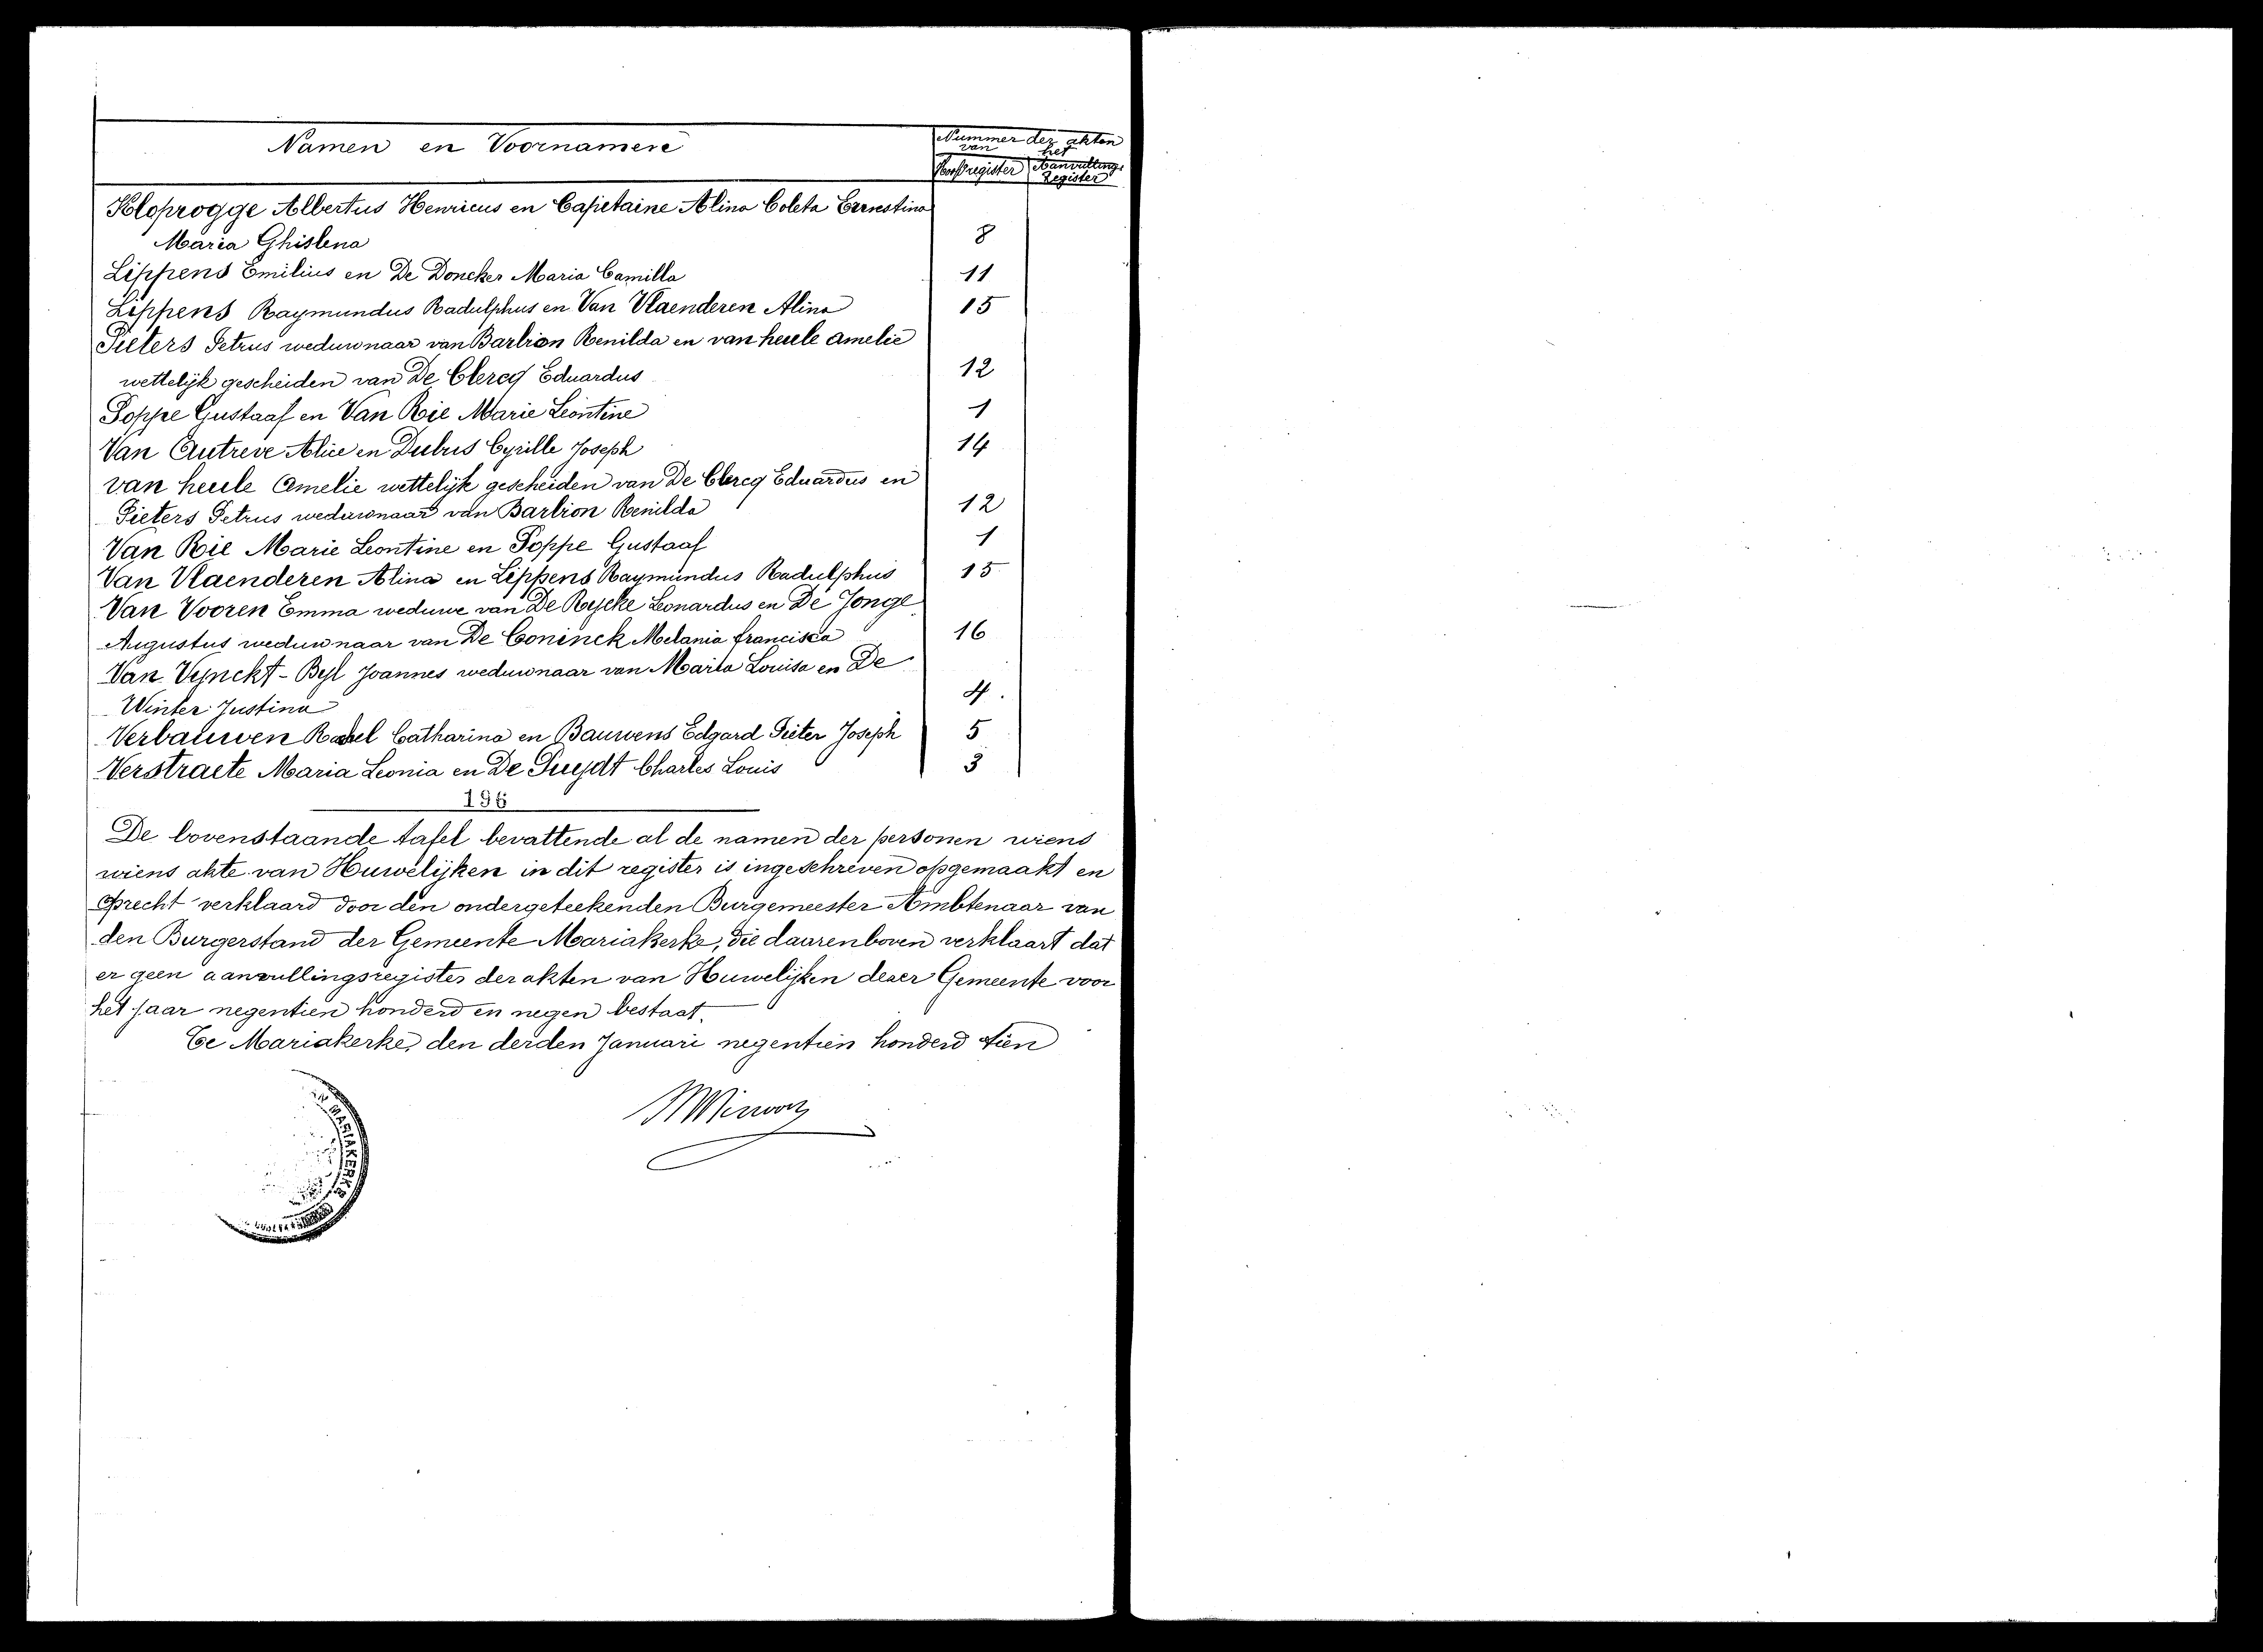 Namen en Voornamen
Nummer der akten
van het
Hoofdregister Aanvullings
Register
Kloprogge Albertus Henricus en Capietaine Alina Coleta Ernestina
Maria Ghislena 8
Lippens Emilius en De Doncker Maria Camilla 11
Lippens Raymundus Radulphus en Van Vlaenderen Alina 15
Pieters Petrus weduwnaar van Barbion Renilda en van heule Amelie
wettelijk gescheiden van De Clercq Eduardus 12
Poppe Gustaaf en Van Rie Marie Leontine 1
Van Autreve Alice en Dubus Cyrille Joseph 14
van heule Amelie wettelijk gescheiden van De Clercq Eduardus en
Pieters Petrus weduwnaar van Barbion Renilda 12
Van Rie Marie Leontine en Poppe Gustaaf 1
Van Vlaenderen Alina en Lippens Raymundus Radulphus 15
Van Vooren Emma weduwe van De Rycke Leonardus en De Jonge
Augustus weduwnaar van De Coninck Melania francisca 16
Van Vynckt-Byl Joannes weduwnaar van Maria Louisa en De
Winter Justina 4.
Verbauwen Rachel Catharina en Bauwens Edgard Pieter Joseph 5
Verstraete Maria Leonia en De Suydt Charles Louis 3
196
De bovenstaande tafel bevattende al de namen der personen wiens
wiens akte van Huwelijken in dit register is ingeschreven opgemaakt en
oprecht verklaard door den ondergeteekenden Burgemeester Ambtenaar van
den Burgerstand der Gemeente Mariakerke, die daarenboven verklaart dat
er geen aanvullingsregister der akten van Huwelijken dezer Gemeente voor
het jaar negentien honderd en negen bestaat.
Te Mariakerke, den derden Januari negentien honderd tien
MARIAKERKE